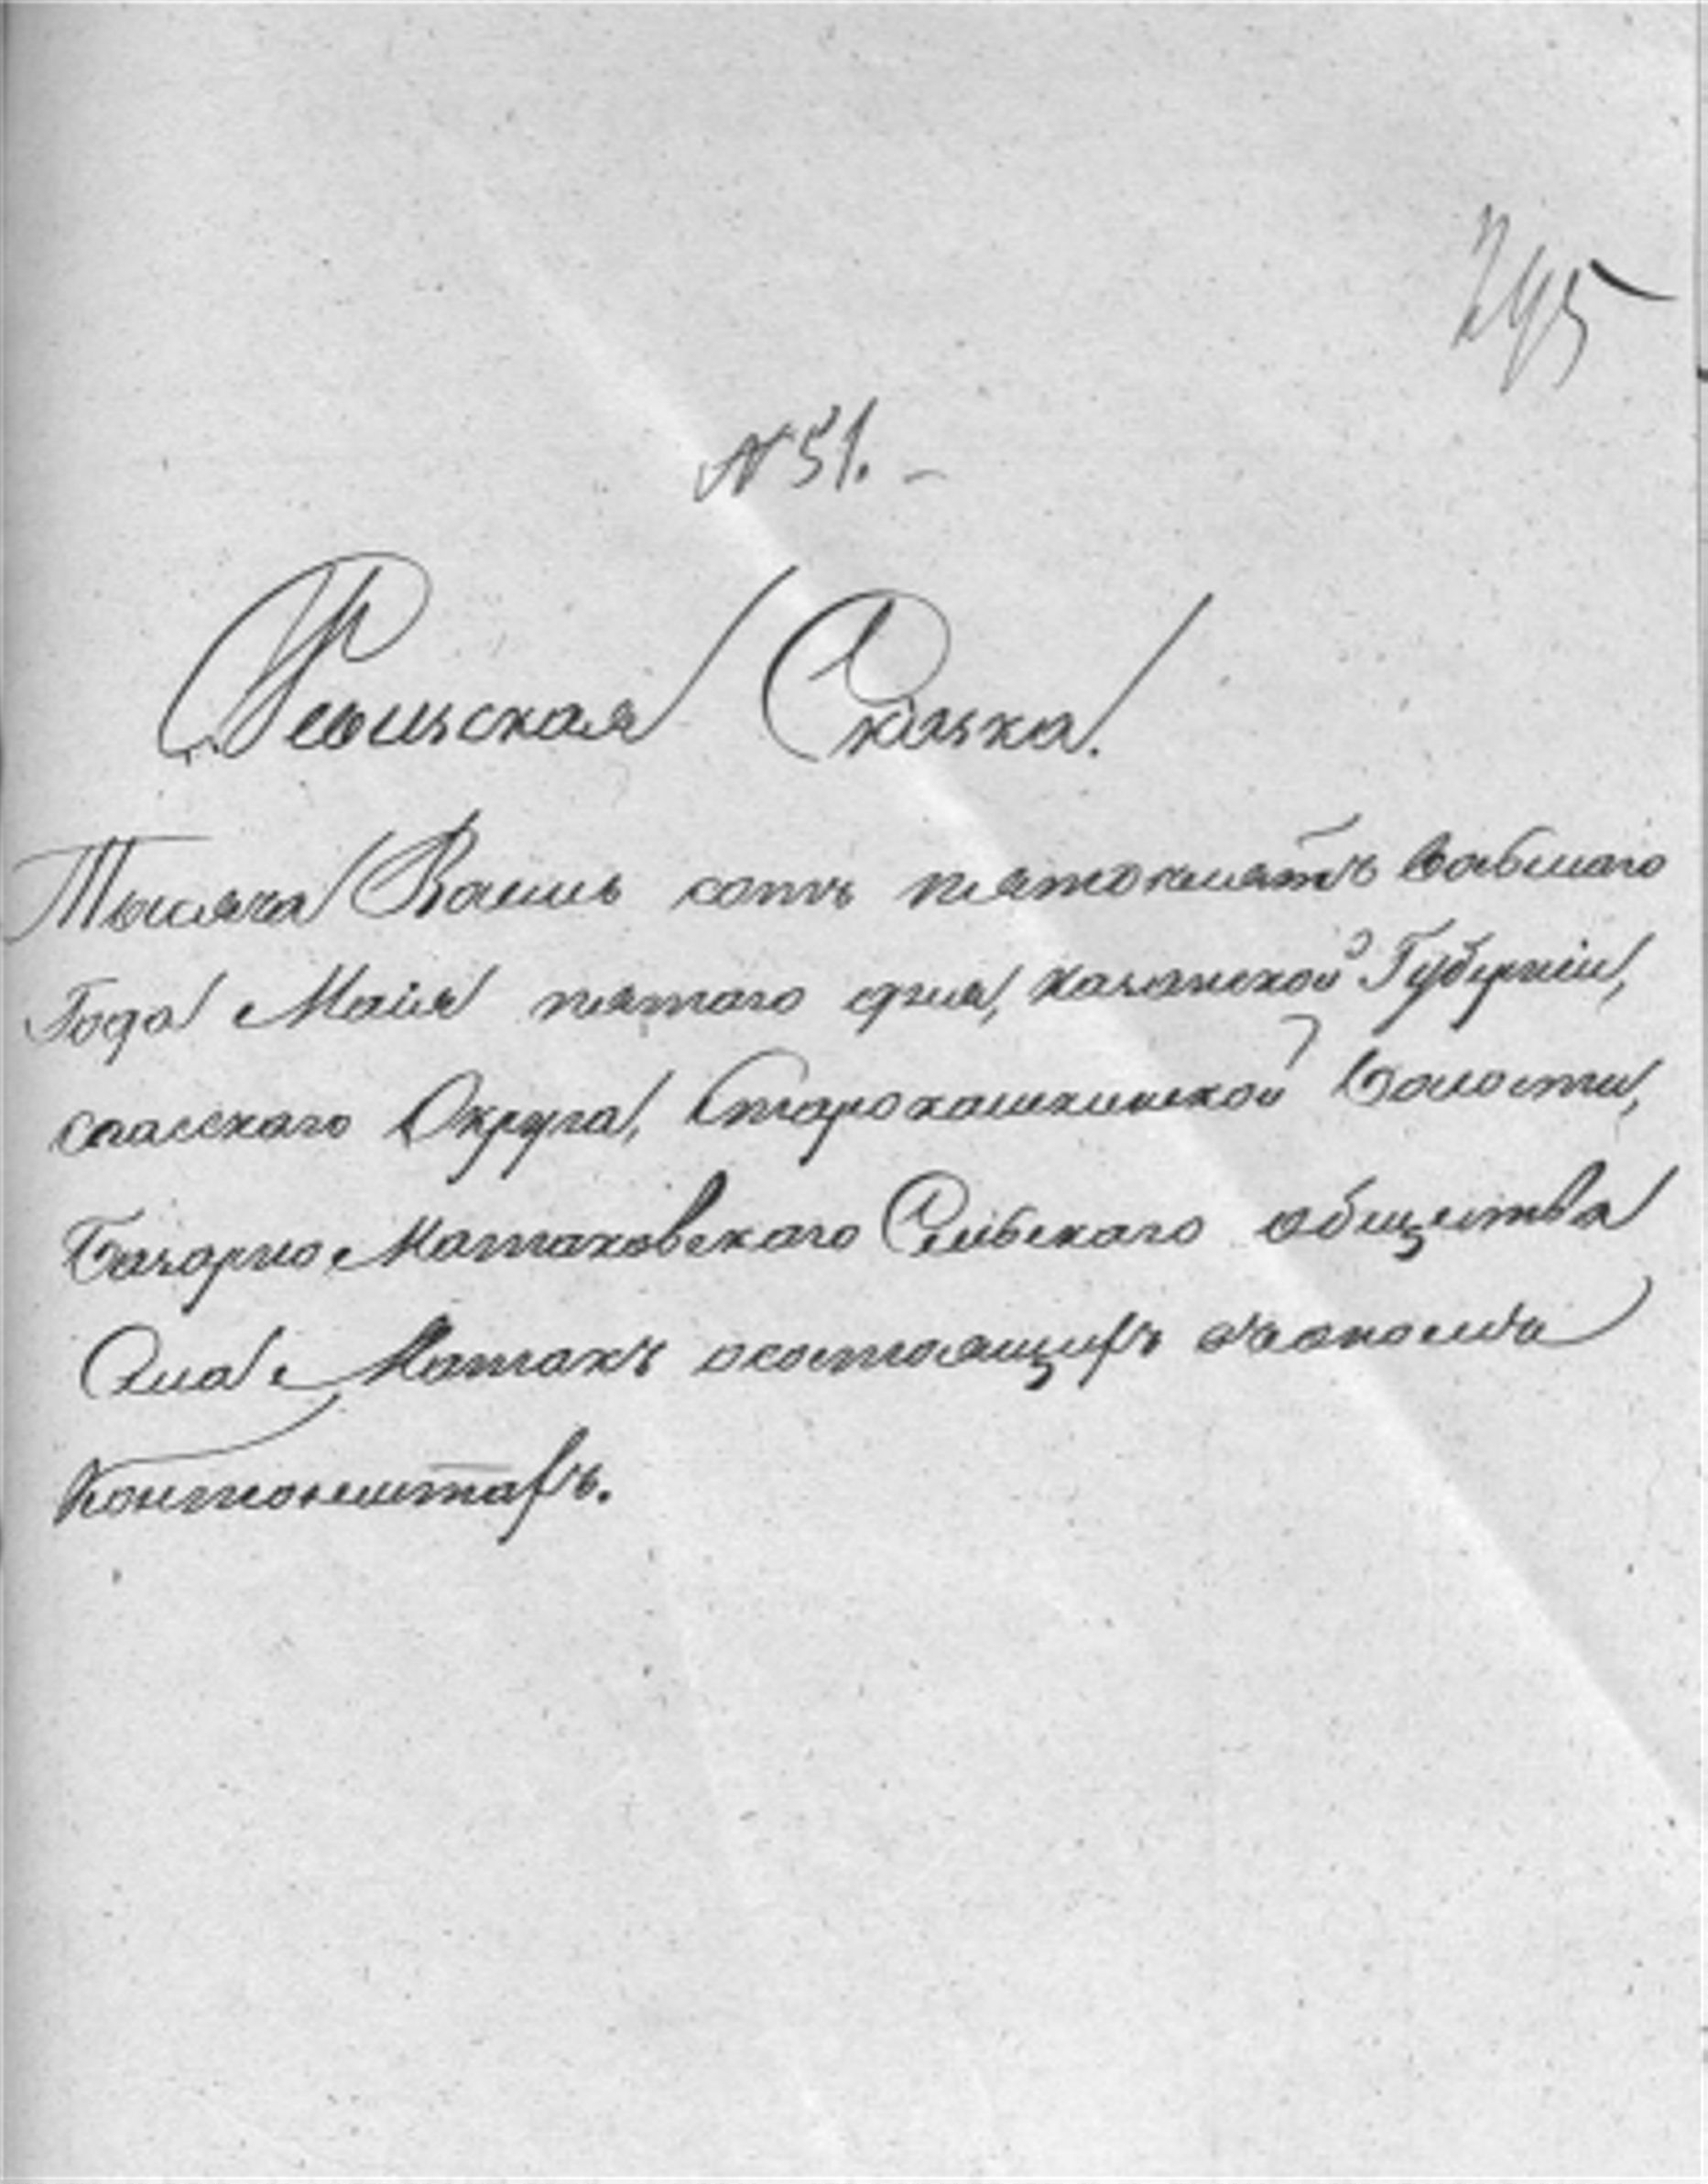 245
№ 51. –
Ревизская Сказка.
Тысяча Восемь сотъ пятьдесятъ восьмаго
Года Маія пятаго дня, Казанской Губерніи,
Спасскаго Округа, Старокашкинской Волости,
Базарно Матаковскаго Сельскаго общества
Села Матакъ